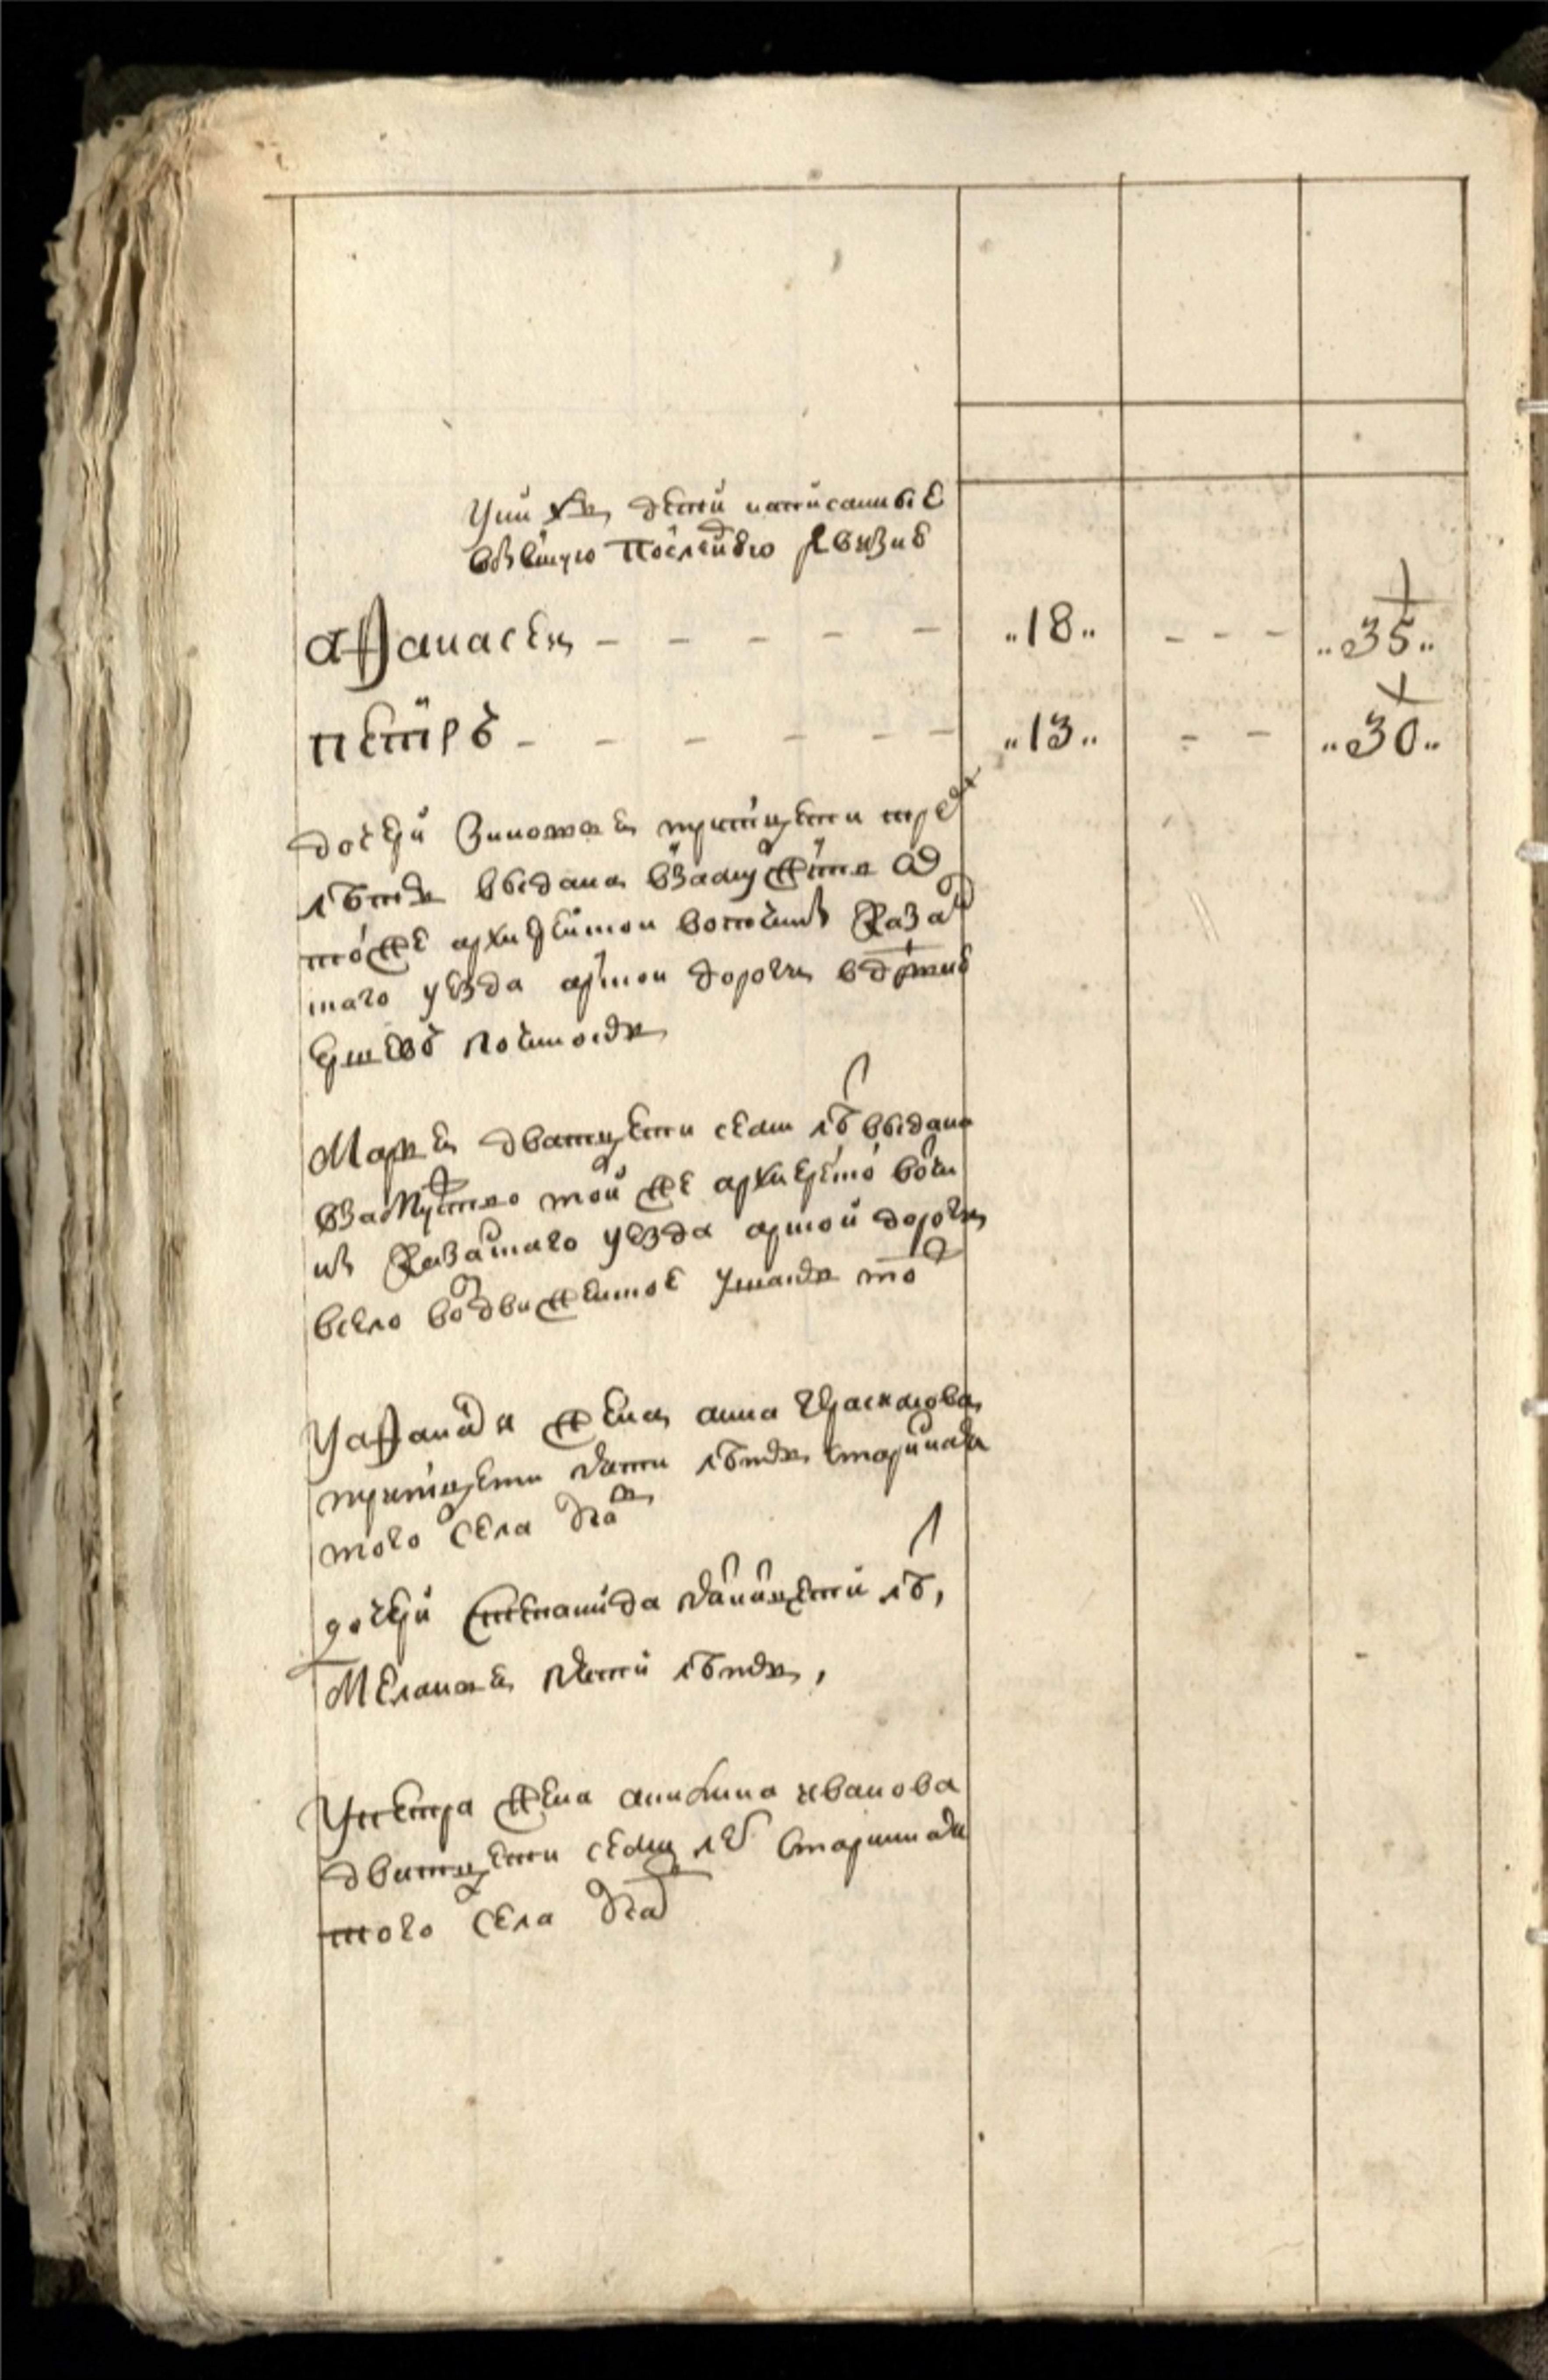 У них детеи написанные
в бывшую последнюю ревизию
Афанасеи - - - - - „18„ - - - „35„
Петръ - - - - - - „13„ - - „30„
дочери Зиновья тритцети трех
летъ выдана в замужство
тоеж архиерейскои вотчины Казан
скаго уезда арскои дороги в деревню
починокъ
Марья дватцети семи летъ выдана
в замужство тои же архиерейской вотчи
ны Казанскаго уезда арской дороги
в село Воздвиженское тож
У Афанасья жена Анна Герасимова
тритцети пяти летъ старинная
того села
дочери Степанида двенатцети летъ,
Меланья пяти летъ,
У Петра жена Анна Иванова
дватцети семи летъ старинная
того села